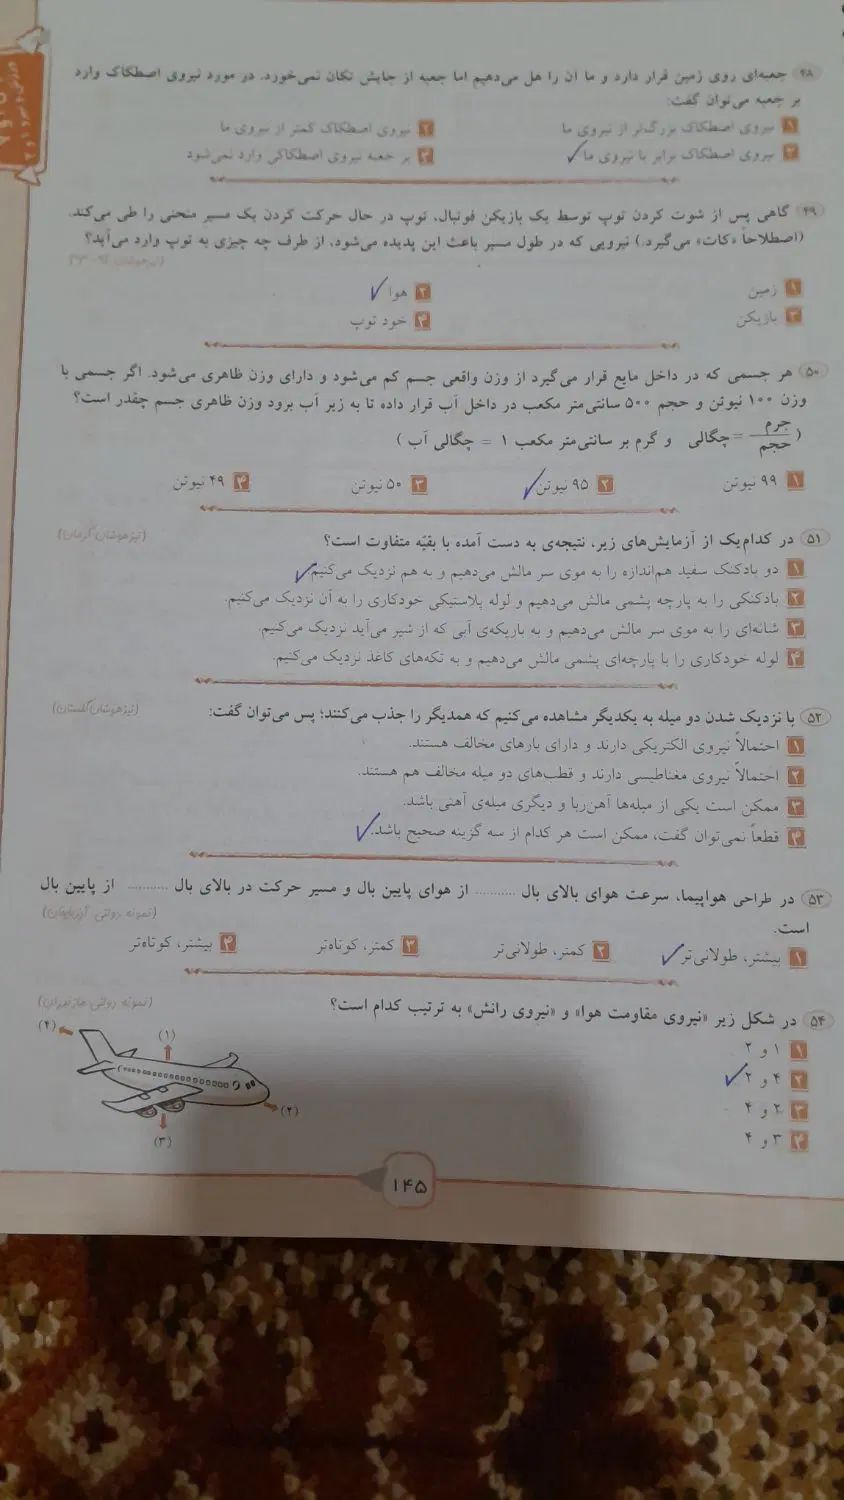 ۴۸ جعبه‌ای روی زمین قرار دارد و ما آن را هل می‌دهیم اما جعبه از جایش تکان نمی‌خورد. در مورد نیروی اصطکاک وارد
بر جعبه می‌توان گفت:
۱ نیروی اصطکاک بزرگ‌تر از نیروی ما
۲ نیروی اصطکاک کمتر از نیروی ما
۳ نیروی اصطکاک برابر با نیروی ما
۴ بر جعبه نیروی اصطکاکی وارد نمی‌شود
۴۹ گاهی پس از شوت کردن توپ توسط یک بازیکن فوتبال، توپ در حال حرکت کردن یک مسیر منحنی را طی می‌کند.
(اصطلاحاً «کات» می‌گیرد.) نیرویی که در طول مسیر باعث این پدیده می‌شود، از طرف چه چیزی به توپ وارد می‌آید؟
۱ زمین
۲ هوا
۳ بازیکن
۴ خود توپ
۵۰ هر جسمی که در داخل مایع قرار می‌گیرد از وزن واقعی جسم کم می‌شود و دارای وزن ظاهری می‌شود. اگر جسمی با
وزن ۱۰۰ نیوتن و حجم ۵۰۰ سانتی‌متر مکعب در داخل آب قرار داده تا به زیر آب برود وزن ظاهری جسم چقدر است؟
(جرم/حجم = چگالی و گرم بر سانتی‌متر مکعب ۱ = چگالی آب )
۱ ۹۹ نیوتن ۲ ۹۵ نیوتن ۳ ۵۰ نیوتن ۴ ۴۹ نیوتن
۵۱ در کدام‌یک از آزمایش‌های زیر، نتیجه‌ی به دست آمده با بقیّه متفاوت است؟ (تیزهوشان کرمان)
۱ دو بادکنک سفید هم‌اندازه را به موی سر مالش می‌دهیم و به هم نزدیک می‌کنیم.
۲ بادکنکی را به پارچه پشمی مالش می‌دهیم و لوله پلاستیکی خودکاری را به آن نزدیک می‌کنیم.
۳ شانه‌ای را به موی سر مالش می‌دهیم و به باریکه‌ی آبی که از شیر می‌آید نزدیک می‌کنیم.
۴ لوله خودکاری را با پارچه‌ای پشمی مالش می‌دهیم و به تکه‌های کاغذ نزدیک می‌کنیم.
۵۲ با نزدیک شدن دو میله به یکدیگر مشاهده می‌کنیم که همدیگر را جذب می‌کنند؛ پس می‌توان گفت: (تیزهوشان گلستان)
۱ احتمالاً نیروی الکتریکی دارند و دارای بارهای مخالف هستند.
۲ احتمالاً نیروی مغناطیسی دارند و قطب‌های دو میله مخالف هم هستند.
۳ ممکن است یکی از میله‌ها آهن‌ربا و دیگری میله‌ی آهنی باشد.
۴ قطعاً نمی‌توان گفت، ممکن است هر کدام از سه گزینه صحیح باشد.
۵۳ در طراحی هواپیما، سرعت هوای بالای بال .......... از هوای پایین بال و مسیر حرکت در بالای بال .......... از پایین بال
است. (نمونه دولتی آذربایجان)
۱ بیشتر، طولانی‌تر ۲ کمتر، طولانی‌تر ۳ کمتر، کوتاه‌تر ۴ بیشتر، کوتاه‌تر
۵۴ در شکل زیر «نیروی مقاومت هوا» و «نیروی رانش» به ترتیب کدام است؟ (نمونه دولتی مازندران)
۱ ۱ و ۲
۲ ۴ و ۲
۳ ۲ و ۴
۴ ۳ و ۴
(۴)
(۱)
(۲)
(۳)
۱۴۵